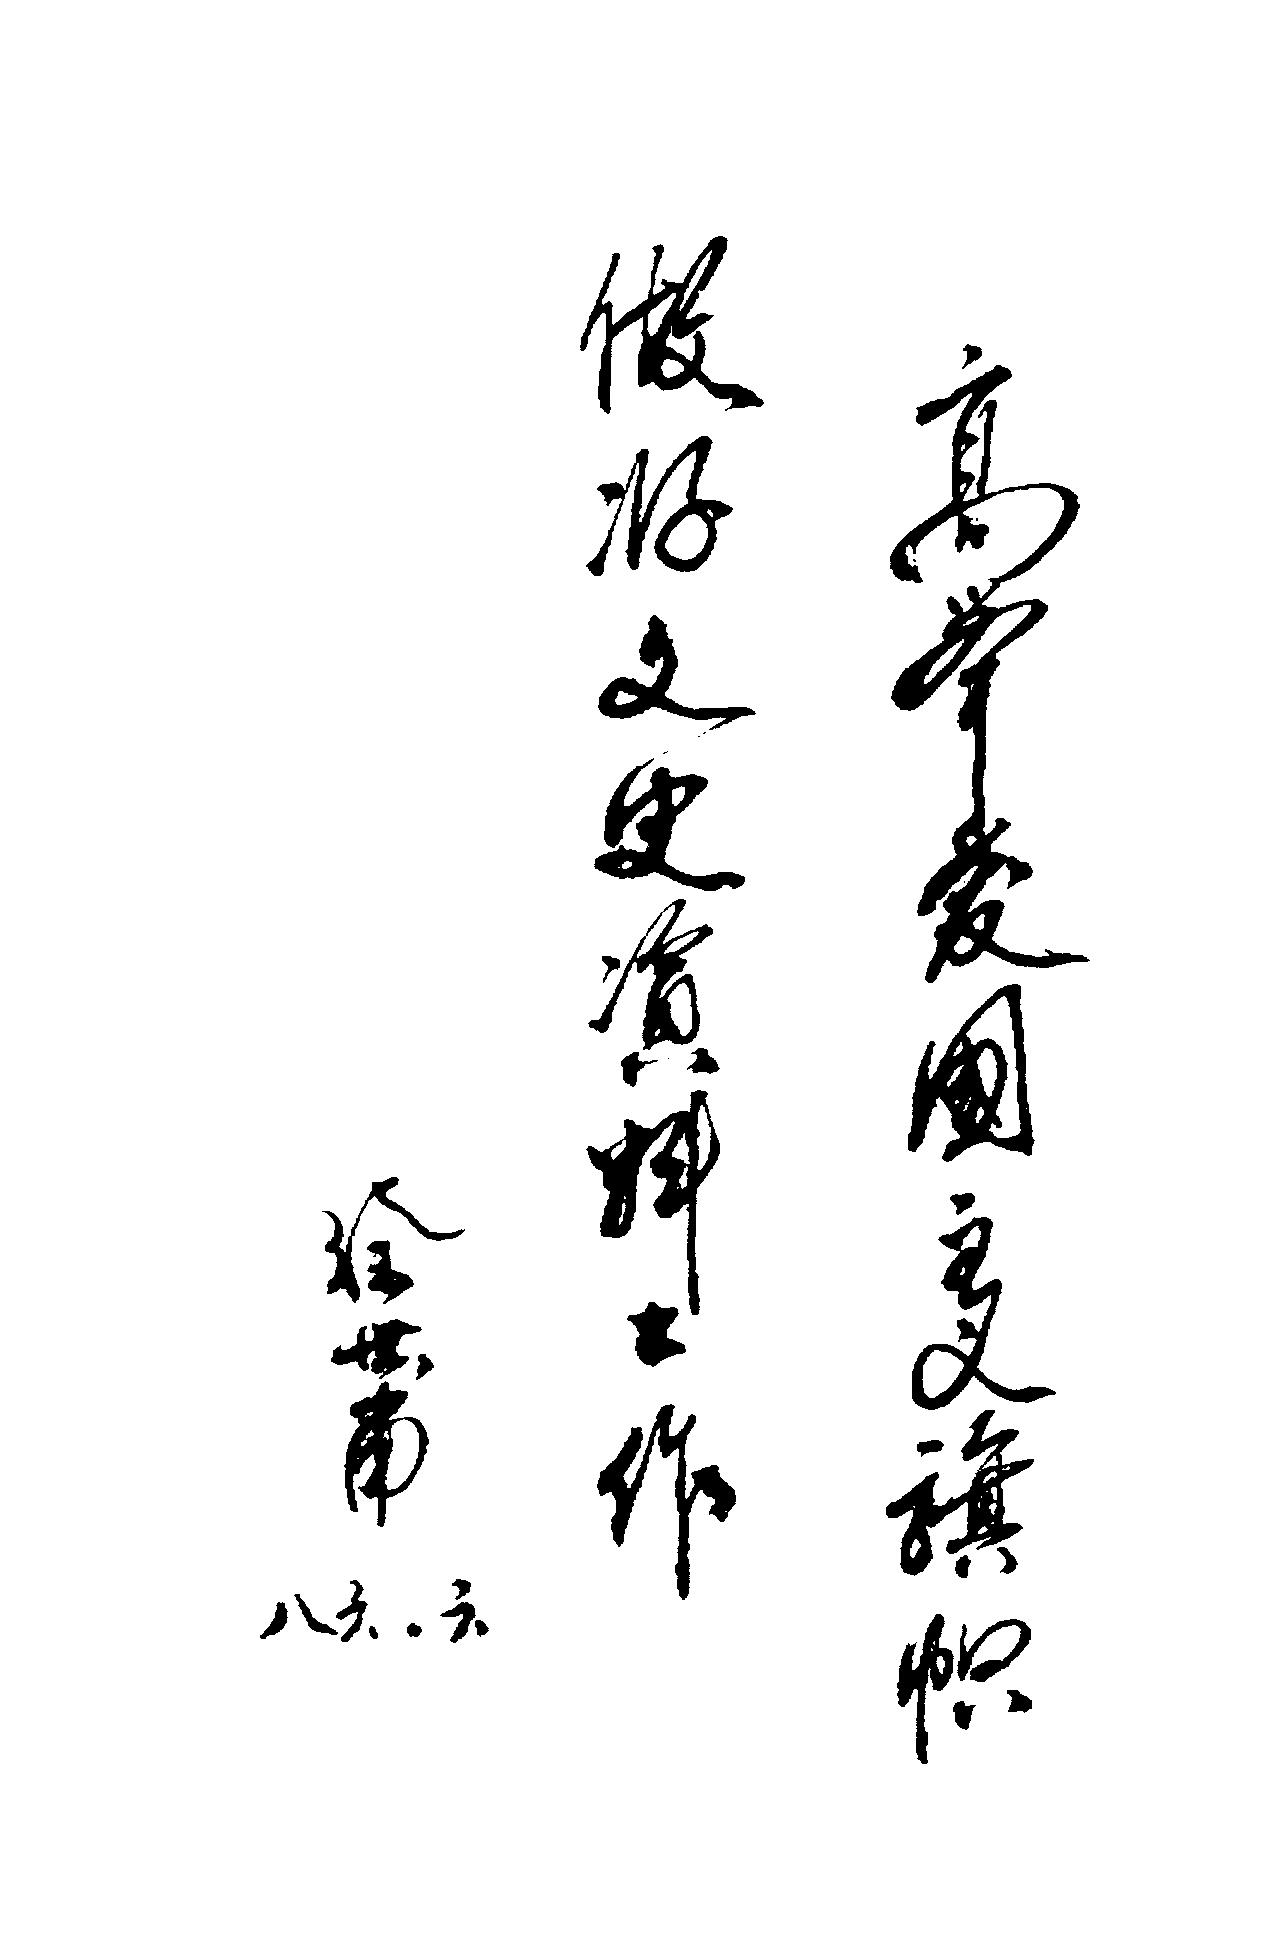 高举爱國主义旗帜
做好文史資料工作
徐世甫
八六.六